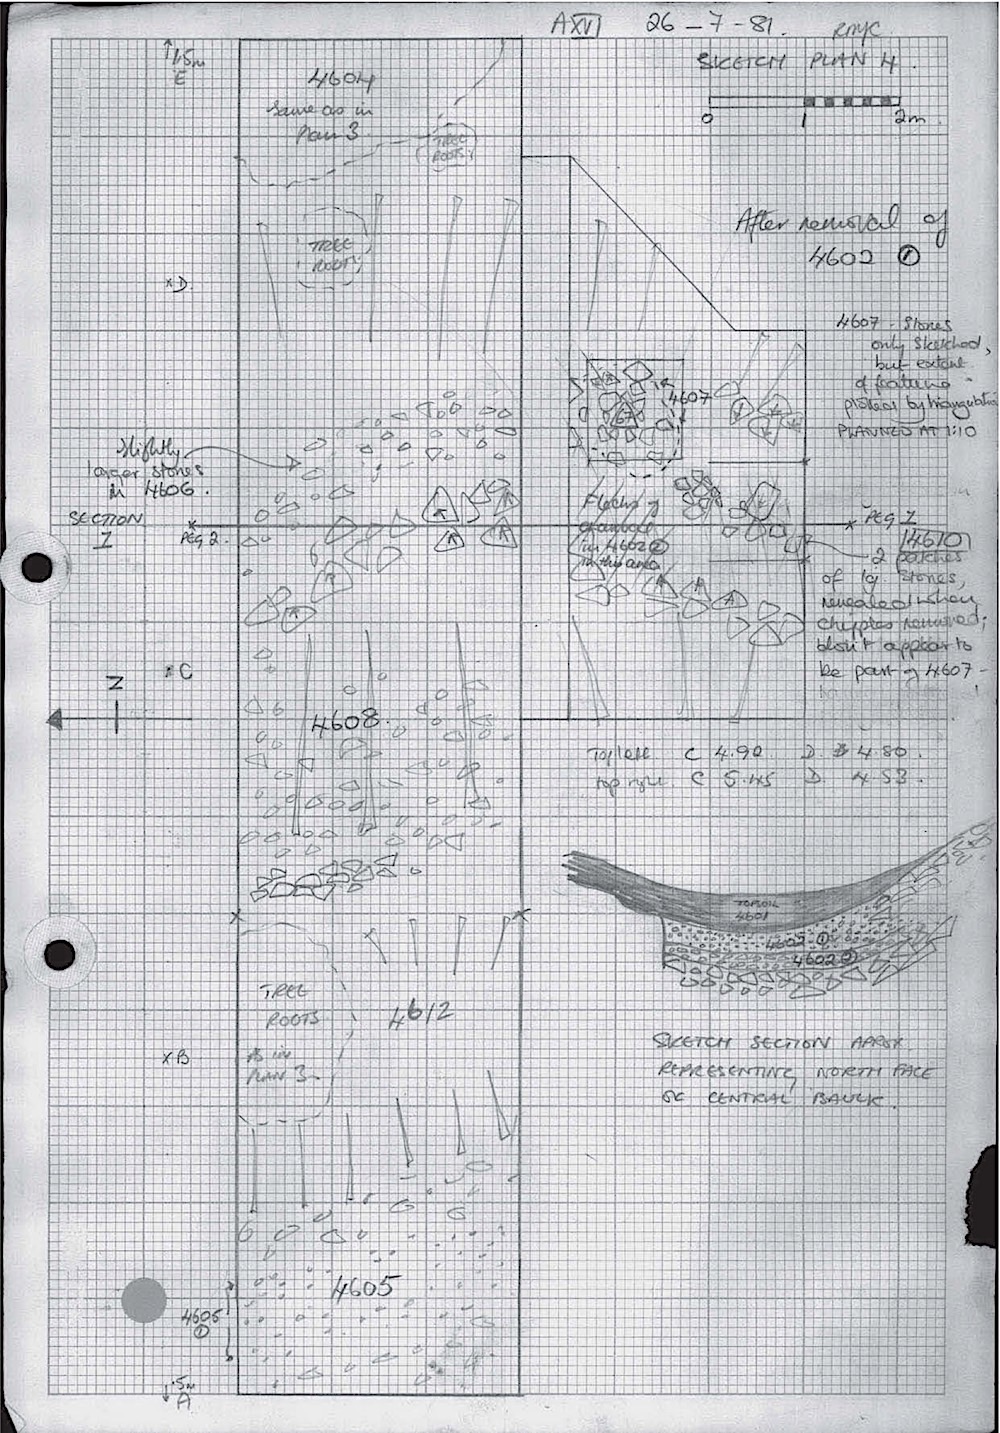 AXVI 26-7-81. RMYC
SKETCH PLAN 4.
0 1 2m
1.5m
E
4604
same as in
Plan 3.
TREE
ROOTS
TREE
ROOTS
After removal of
4602 ①
x D.
4607 - Stones
only sketched,
but extent
of feature
plotted by triangulation
PLANNED AT 1:10
4607
Slightly
larger stones
in 4606.
SECTION
1
PEG 2.
Flecks of
charcoal
in 4602②
in this area
PEG 1
4610
2 patches
of lg stones,
revealed when
removed;
don't appear to
be part of 4607-
x C
N
4608.
Top left C 4.90 D 4.80.
top right. C 5.45 D 4.53.
TOPSOIL
4601
4602 ①
4602 ②
SKETCH SECTION APPROX.
REPRESENTING NORTH FACE
OF CENTRAL BAULK.
TREE
ROOTS
4612
As in
PLAN 3
x B
4605
4605
①
.5m
A